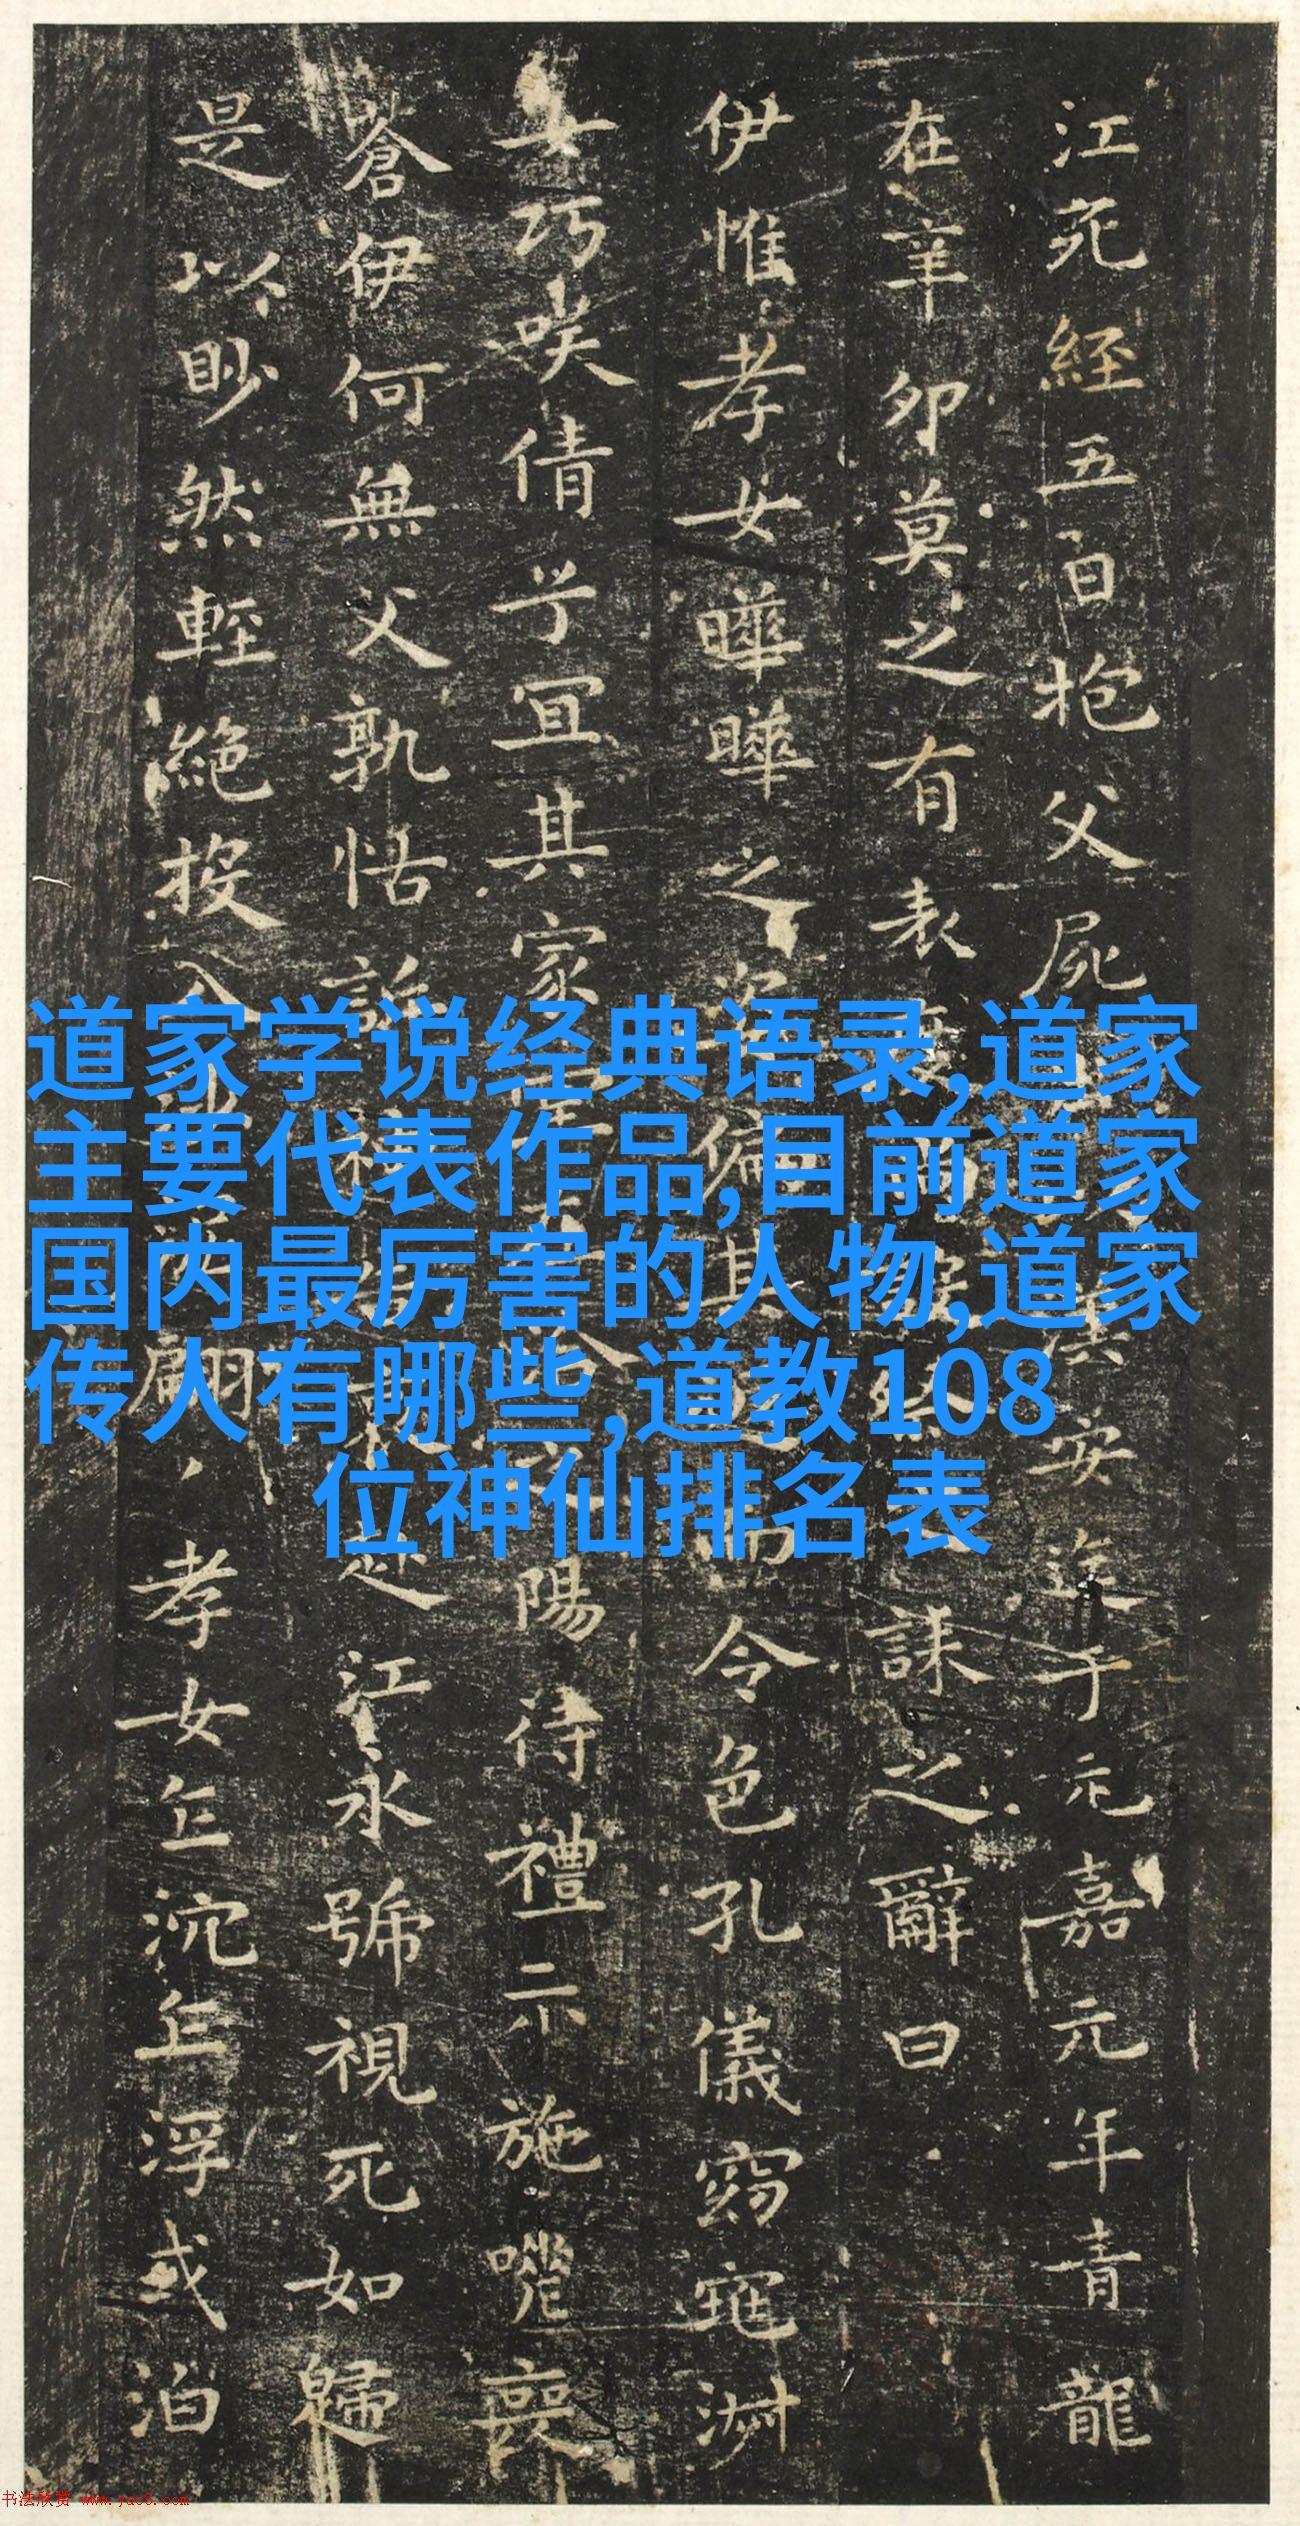 江死經五日抱父屍
安遷于元嘉元年青龍
在辛卯莫之有表
誄之辭曰
伊惟孝女曄曄之姿偏其
令色孔儀窈窕
女巧笑倩兮宜其家
陽待禮未施嗟喪
蒼伊何無父孰怙訴
江永號視死如歸
是以眇然輕絕投入
翩孝女乍沉乍浮或泊
道家学说经典语录,道家
主要代表作品,目前道家
国内最厉害的人物,道家
传人有哪些,道教108
位神仙排名表
书法欣赏 www.yac8.com